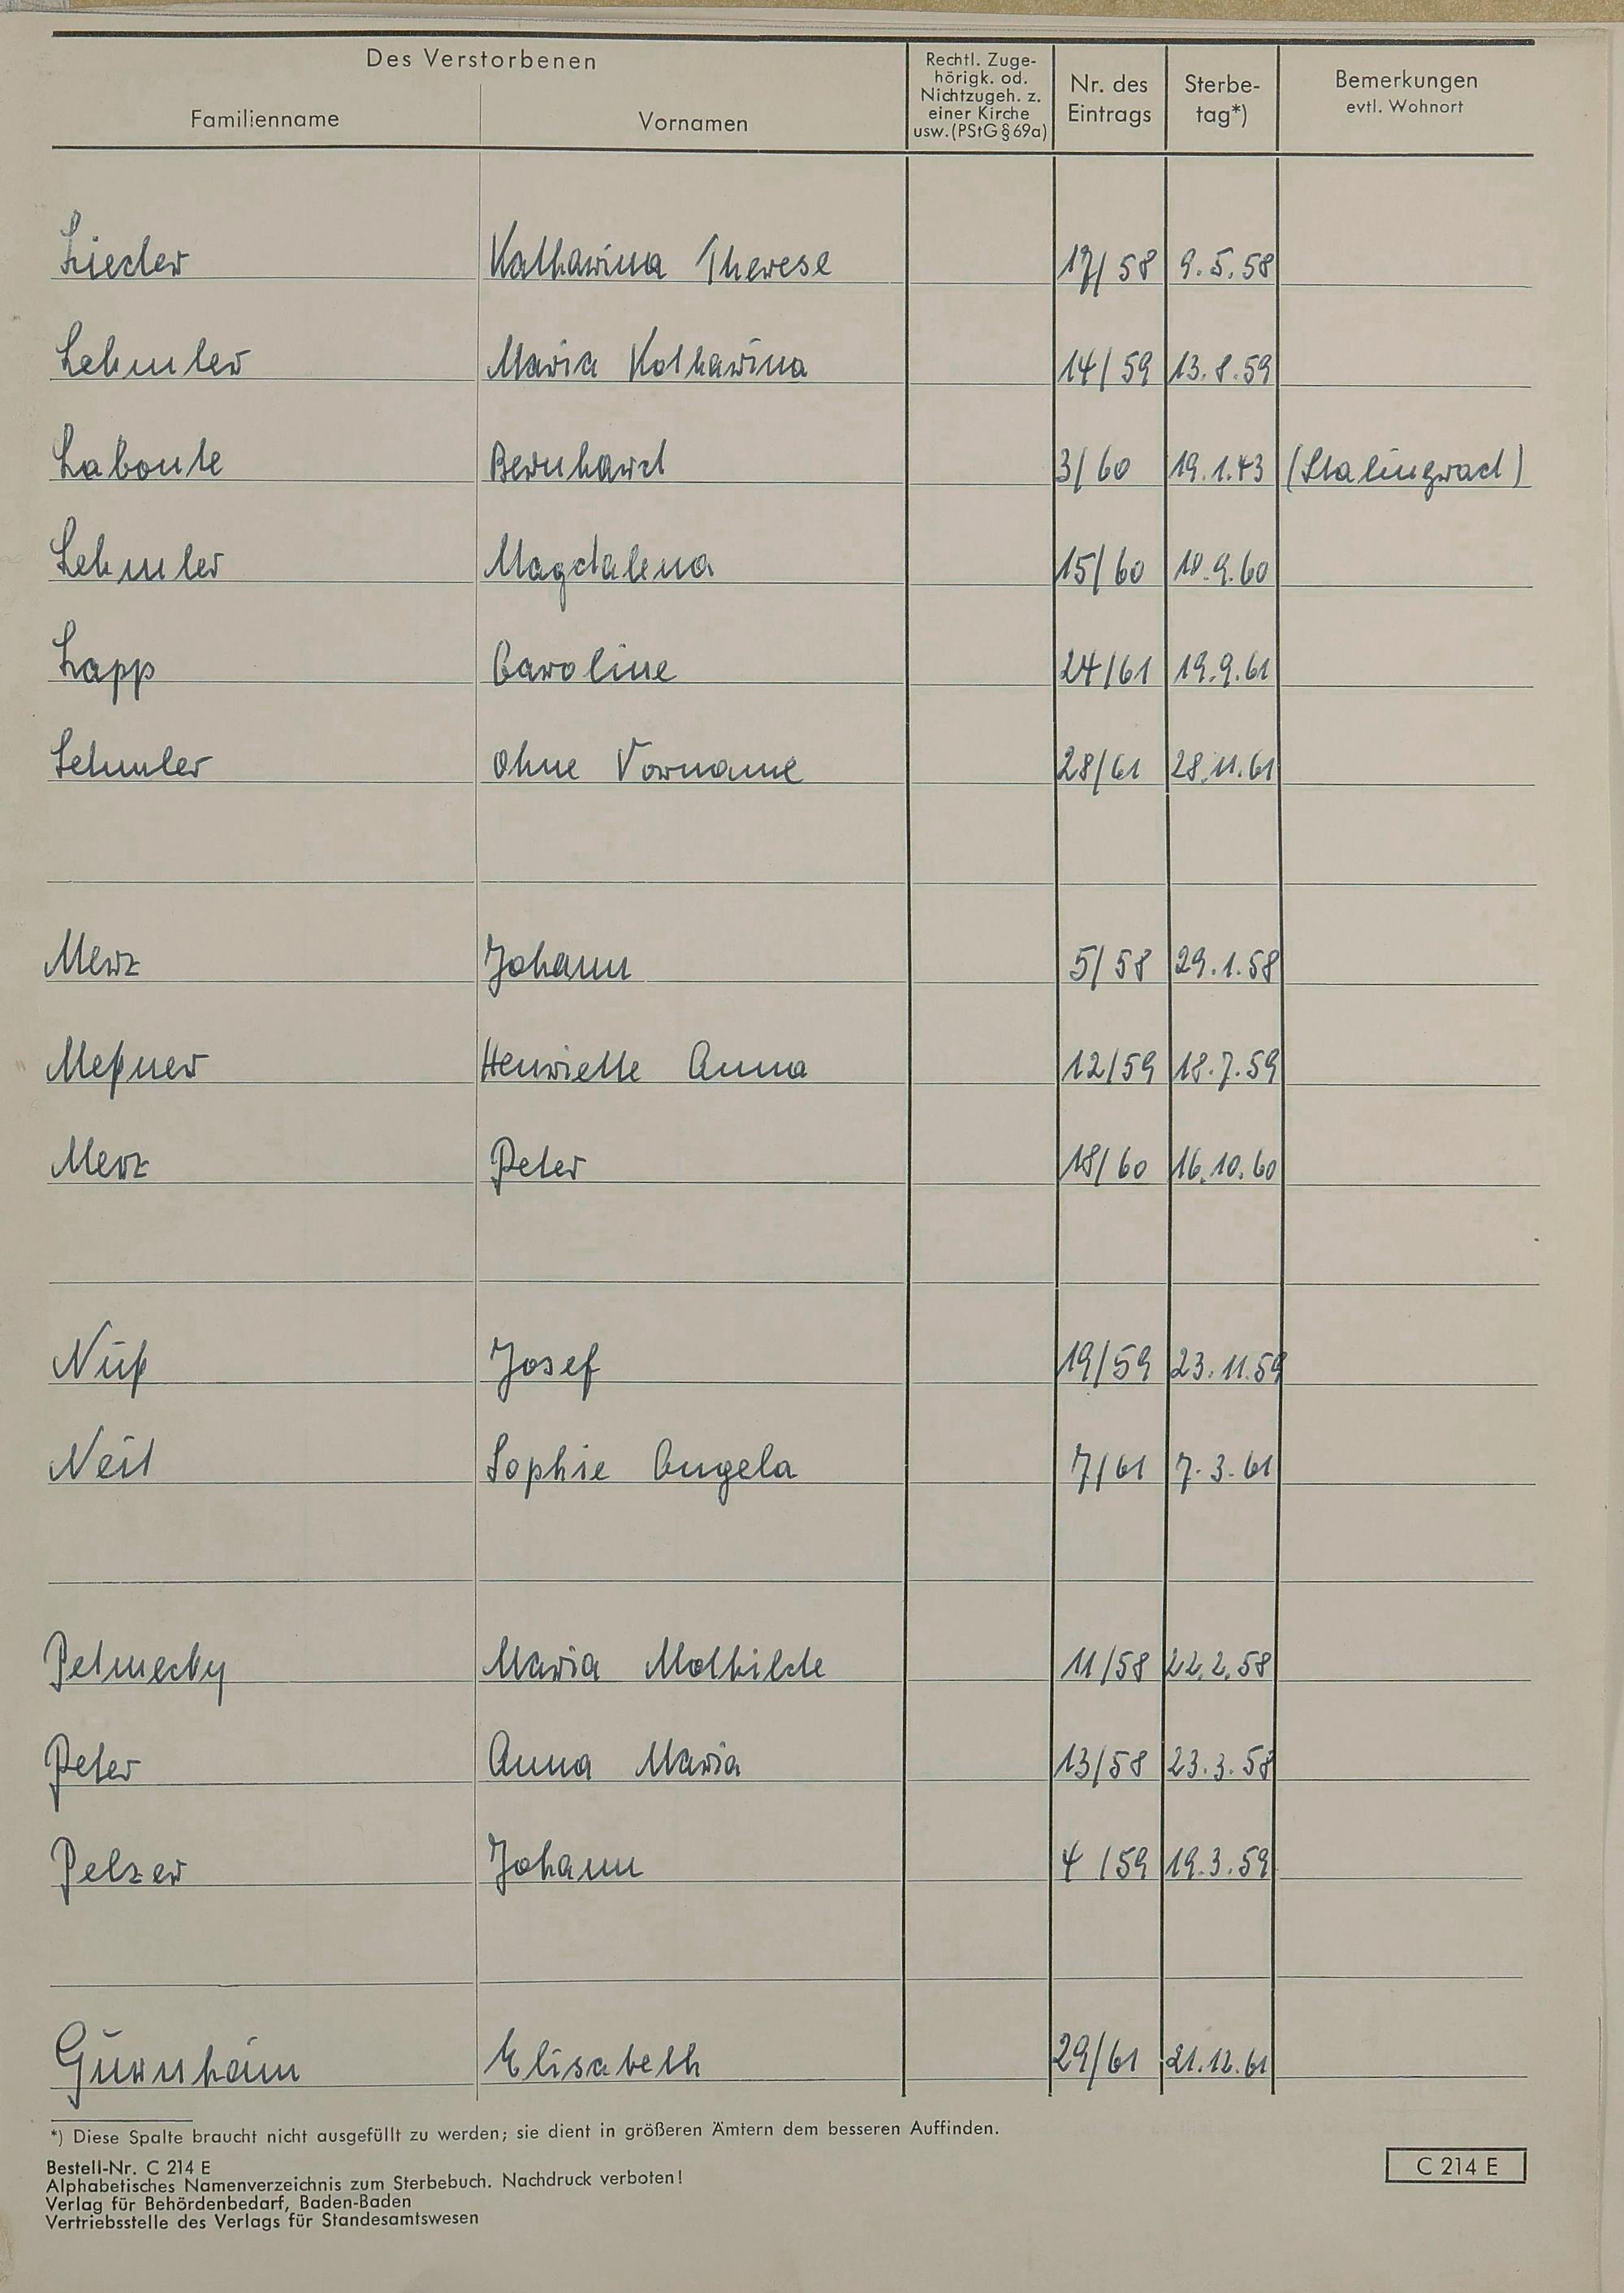 Des Verstorbenen
Familienname Vornamen Rechtl. Zuge-
hörigk. od.
Nichtzugeh. z.
einer Kirche
usw. (PStG § 69a) Nr. des
Eintrags Sterbe-
tag*) Bemerkungen
evtl. Wohnort
Lieder Katharina Therese 17/58 9.5.58
Lehmler Maria Katharina 14/59 13.8.59
Labonte Bernhard 3/60 19.1.43 (Stalingrad)
Lehmler Magdalena 15/60 10.9.60
Lapp Caroline 24/61 19.9.61
Lehmler ohne Vorname 28/61 28.11.61
Merz Johann 5/58 29.1.58
Meßner Henriette Anna 12/59 18.7.59
Merz Peter 18/60 16.10.60
Nüß Josef 19/59 23.11.59
Neit Sophie Angela 7/61 7.3.61
Petmecky Maria Mathilde 11/58 22.2.58
Peter Anna Maria 13/58 23.3.58
Pelzer Johann 4/59 19.3.59
Elisabeth 29/61 21.12.61
*) Diese Spalte braucht nicht ausgefüllt zu werden; sie dient in größeren Ämtern dem besseren Auffinden.
Bestell-Nr. C 214 E
Alphabetisches Namenverzeichnis zum Sterbebuch. Nachdruck verboten!
Verlag für Behördenbedarf, Baden-Baden
Vertriebsstelle des Verlags für Standesamtswesen
C 214 E